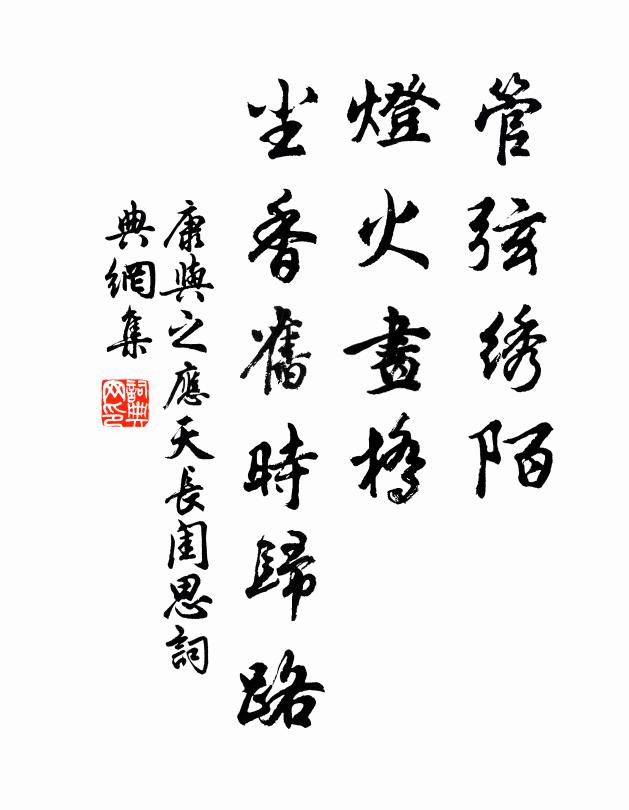 管弦绣陌
燈火畫橋
尘香舊時歸路
康與之應天長閨思詞
典網集
詞典網印